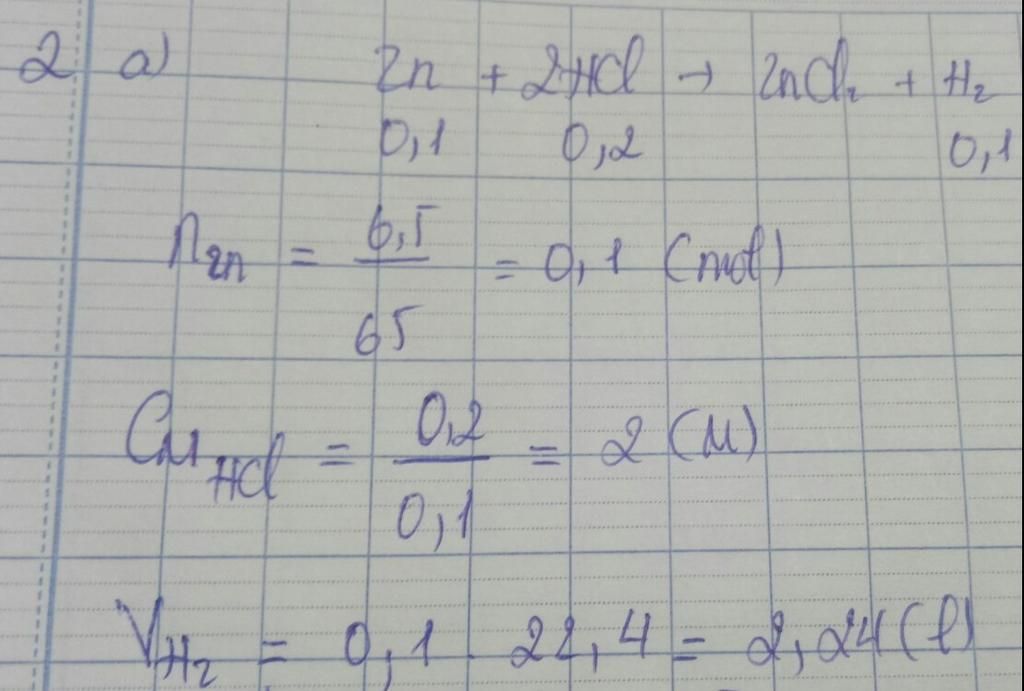 2 a) Zn + 2HCl → ZnCl₂ + H₂
0,1 0,2 0,1
n_Zn = 6,5/65 = 0,1 (mol)
C_M HCl = 0,2/0,1 = 2 (M)
V_H₂ = 0,1 . 22,4 = 2,24 (l)